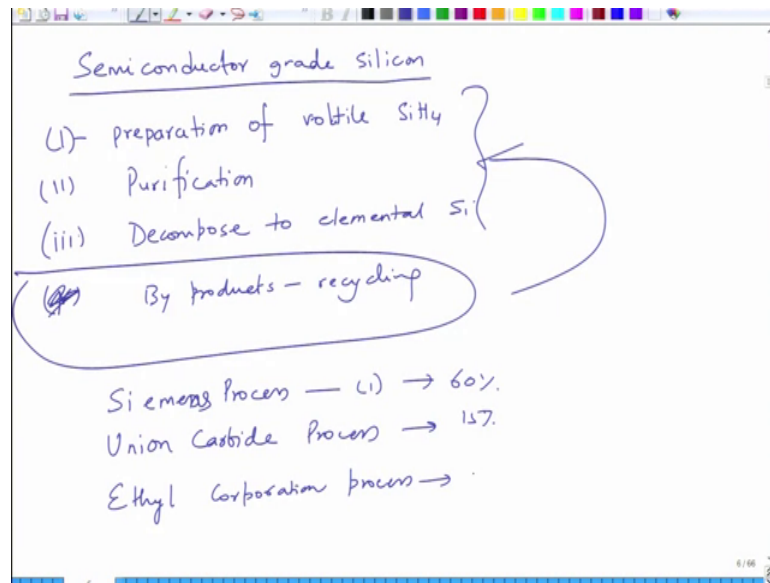 Semiconductor grade silicon
(i)- preparation of voltile SiH4
(ii) Purification
(iii) Decompose to elemental Si
By products - recycling
Siemens Process — (1) → 60%.
Union Carbide Process → 15%.
Ethyl Corporation process →
6 / 66